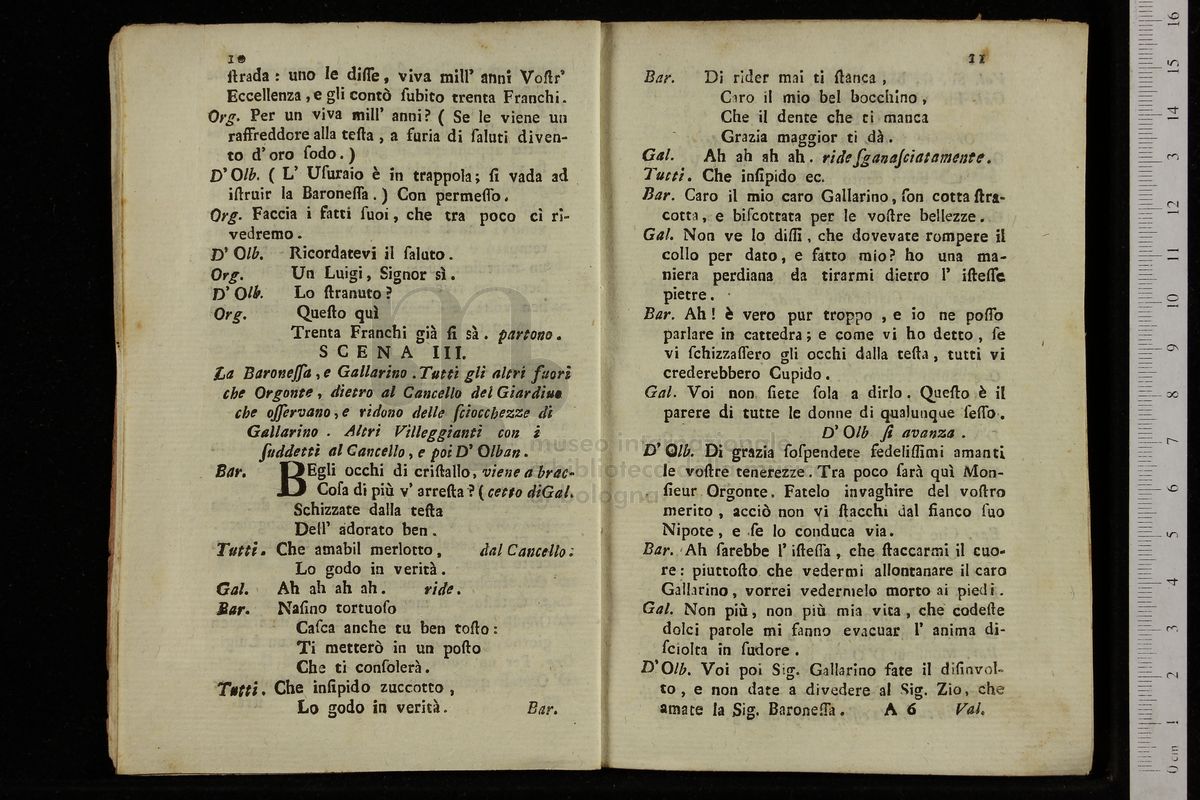 10
ſtrada : uno le diſſe, viva mill' anni Voſtr'
Eccellenza, e gli contò ſubito trenta Franchi.
Org. Per un viva mill' anni? ( Se le viene un
raffreddore alla teſta, a furia di ſaluti diven-
to d'oro ſodo. )
D'Olb. ( L' Uſuraio è in trappola; ſi vada ad
iſtruir la Baroneſſa. ) Con permeſſo.
Org. Faccia i fatti ſuoi, che tra poco ci ri-
vedremo.
D' Olb. Ricordatevi il ſaluto.
Org. Un Luigi, Signor sì.
D' Olb. Lo ſtranuto?
Org. Queſto quì
Trenta Franchi già ſi sà. partono.
SCENA III.
La Baroneſſa, e Gallarino. Tutti gli altri fuori
che Orgonte, dietro al Cancello del Giardino
che oſſervano, e ridono delle ſciocchezze di
Gallarino. Altri Villeggianti con i
ſuddetti al Cancello, e poi D' Olban.
Bar. BEgli occhi di criſtallo, viene a brac-
Coſa di più v' arreſta? ( cetto di Gal.
Schizzate dalla teſta
Dell' adorato ben.
Tutti. Che amabil merlotto, dal Cancello:
Lo godo in verità.
Gal. Ah ah ah ah. ride.
Bar. Naſino tortuoſo
Caſca anche tu ben toſto:
Ti metterò in un poſto
Che ti conſolerà.
Tutti. Che inſipido zuccotto,
Lo godo in verità. Bar.
11
Bar. Di rider mai ti ſtanca,
Caro il mio bel bocchino,
Che il dente che ti manca
Grazia maggior ti dà.
Gal. Ah ah ah ah. ride ſganaſciatamente.
Tutti. Che inſipido ec.
Bar. Caro il mio caro Gallarino, ſon cotta ſtra-
cotta, e biſcottata per le voſtre bellezze.
Gal. Non ve lo diſſi, che dovevate rompere il
collo per dato, e fatto mio? ho una ma-
niera perdiana da tirarmi dietro l' iſteſſe
pietre.
Bar. Ah! è vero pur troppo, e io ne poſſo
parlare in cattedra; e come vi ho detto, ſe
vi ſchizzaſſero gli occhi dalla teſta, tutti vi
crederebbero Cupido.
Gal. Voi non ſiete ſola a dirlo. Queſto è il
parere di tutte le donne di qualunque ſeſſo.
D' Olb ſi avanza.
D' Olb. Di grazia ſoſpendete fedeliſſimi amanti
le voſtre tenerezze. Tra poco ſarà quì Mon-
ſieur Orgonte. Fatelo invaghire del voſtro
merito, acciò non vi ſtacchi dal fianco ſuo
Nipote, e ſe lo conduca via.
Bar. Ah ſarebbe l' iſteſſa, che ſtaccarmi il cuo-
re: piuttoſto che vedermi allontanare il caro
Gallarino, vorrei vedermelo morto ai piedi.
Gal. Non più, non più mia vita, che codeſte
dolci parole mi fanno evacuar l' anima di-
ſciolta in ſudore.
D'Olb. Voi poi Sig. Gallarino fate il diſinvol-
to, e non date a divedere al Sig. Zio, che
amate la Sig. Baroneſſa. A 6 Val.
museo internazionale
biblioteca della musica
bologna
0 cm 1 2 3 4 5 6 7 8 9 10 11 12 13 14 15 16